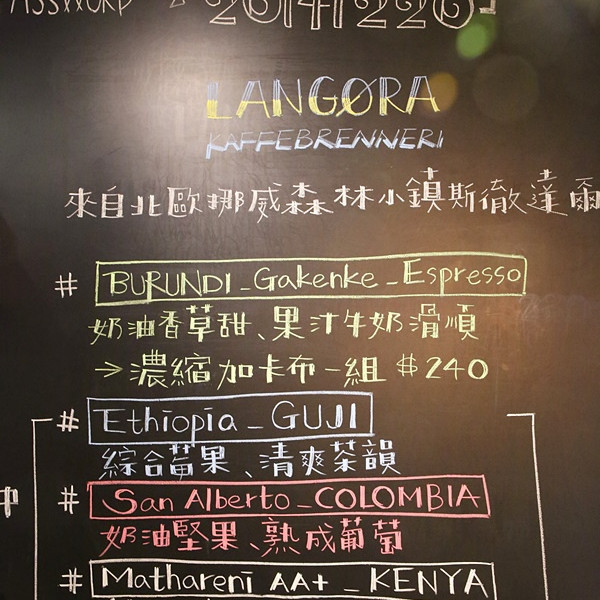 LANGØRA
KAFFEBRENNERI
來自北歐挪威森林小鎮斯徹達爾
# BURUNDI_Gakenke_Espresso
奶油香草甜、果汁牛奶滑順
→濃縮加卡布一組 $240
# Ethiopia_GUJI
綜合莓果、清爽茶韻
中 # San Alberto_COLOMBIA
奶油堅果、熟成葡萄
# Mathareni AA+_KENYA